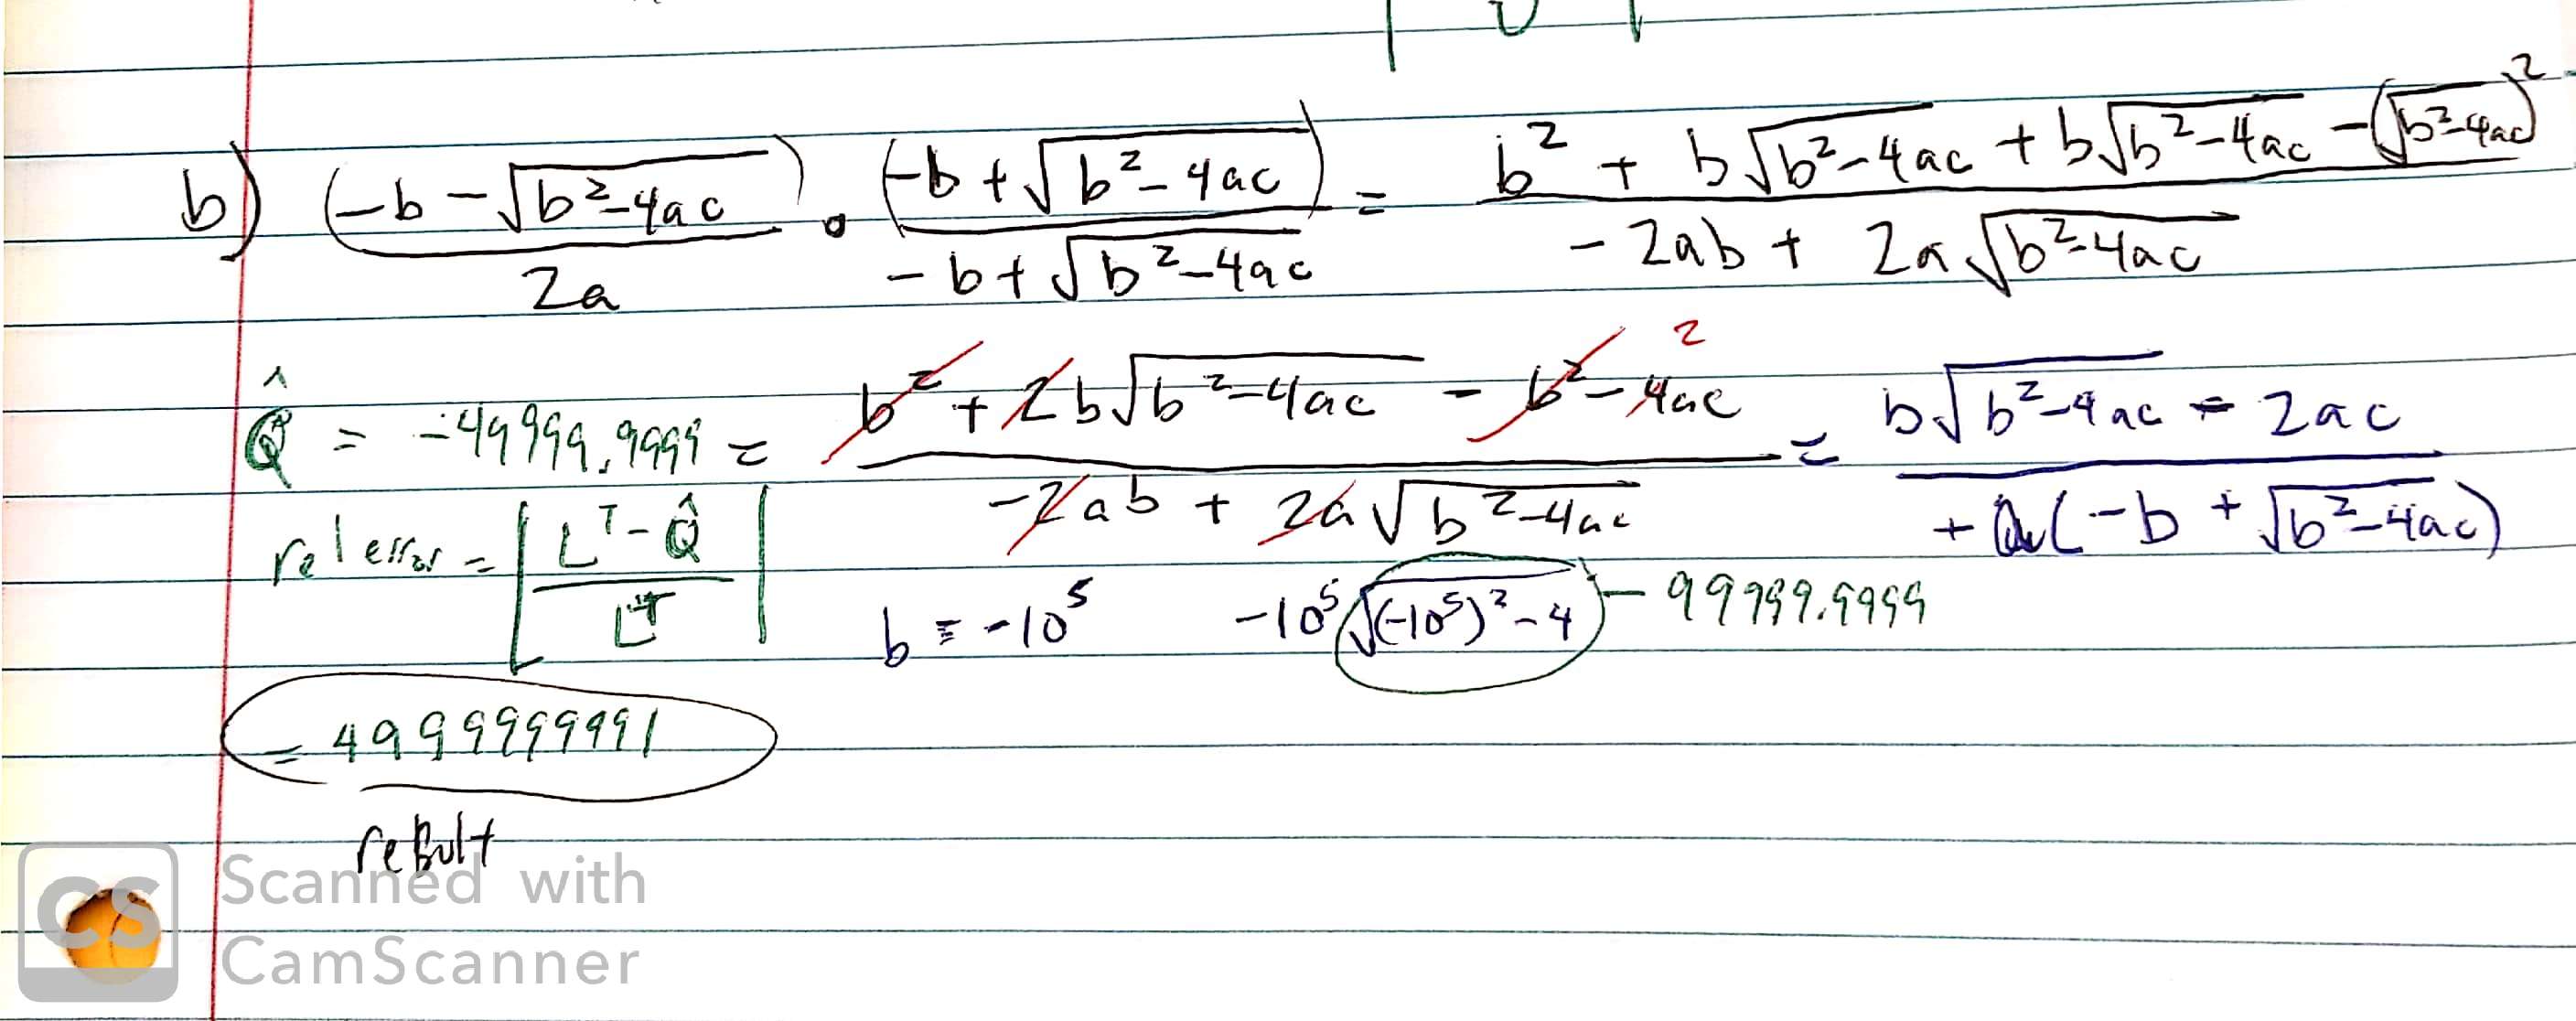 b) (-b - √(b²-4ac))/2a · (-b + √(b²-4ac))/(-b + √(b²-4ac)) = (b² + b√(b²-4ac) + b√(b²-4ac) - (√(b²-4ac))²)/(-2ab + 2a√(b²-4ac))
Q̂ = -49999.9999 = (b² + 2b√(b²-4ac) - b² - 4ac)/(-2ab + 2a√(b²-4ac)) = (b√(b²-4ac) - 2ac)/(+a(-b + √(b²-4ac)))
2
rel error = |(L^T - Q̂)/L^T|
b = -10⁵ -10⁵√((-10⁵)² - 4) - 99999.9999
= 4999999991
result
CS Scanned with
CamScanner